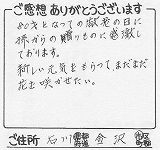 ご感想 ありがとうございます
80才となっての敬老の日に
孫からの贈りものに感激し
ております。
新しい元気をもらって、まだまだ
花と咲かせたい。
ご住所 石川 都道府県 金沢 市区町村